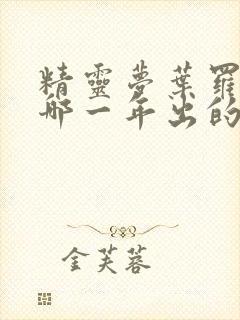 精靈夢葉羅
哪一年出的
金芙蓉